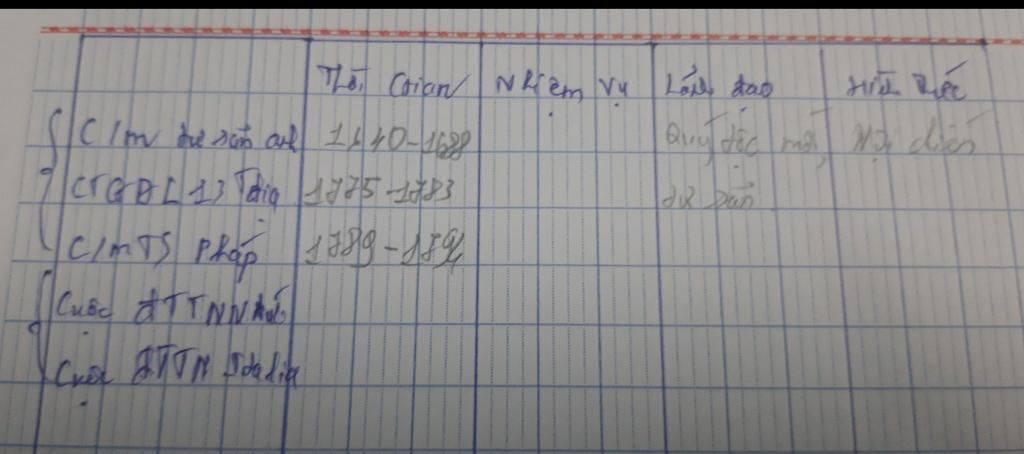 Thời Gian Nhiệm vụ Lãnh đạo Hình thức
C/m tư sản anh 1640-1688 Quý tộc mới, Nội chiến
CTGĐL 13 Tđịa 1775-1783 tư sản
C/mTS Pháp 1789-1794
Cuộc ĐTTNN
Cuộc ĐTTN Italia